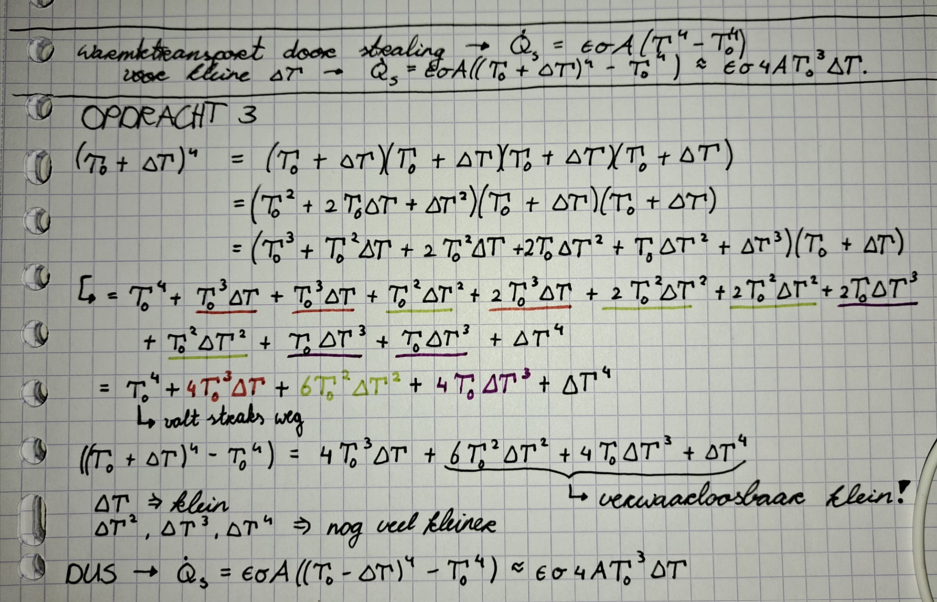 warmtetransport door straling → Q̇ₛ = εσA(T⁴ - T₀⁴)
voor kleine ΔT → Q̇ₛ = εσA((T₀ + ΔT)⁴ - T₀⁴) ≈ εσ4AT₀³ΔT.
OPDRACHT 3
(T₀ + ΔT)⁴ = (T₀ + ΔT)(T₀ + ΔT)(T₀ + ΔT)(T₀ + ΔT)
= (T₀² + 2T₀ΔT + ΔT²)(T₀ + ΔT)(T₀ + ΔT)
= (T₀³ + T₀²ΔT + 2T₀²ΔT + 2T₀ΔT² + T₀ΔT² + ΔT³)(T₀ + ΔT)
↳ = T₀⁴ + T₀³ΔT + T₀³ΔT + T₀²ΔT² + 2T₀³ΔT + 2T₀²ΔT² + 2T₀²ΔT² + 2T₀ΔT³
+ T₀²ΔT² + T₀ΔT³ + T₀ΔT³ + ΔT⁴
= T₀⁴ + 4T₀³ΔT + 6T₀²ΔT² + 4T₀ΔT³ + ΔT⁴
↳ valt straks weg
((T₀ + ΔT)⁴ - T₀⁴) = 4T₀³ΔT + 6T₀²ΔT² + 4T₀ΔT³ + ΔT⁴
↳ verwaarloosbaar klein!
ΔT ⇒ klein
ΔT², ΔT³, ΔT⁴ ⇒ nog veel kleiner
DUS → Q̇ₛ = εσA((T₀ - ΔT)⁴ - T₀⁴) ≈ εσ4AT₀³ΔT